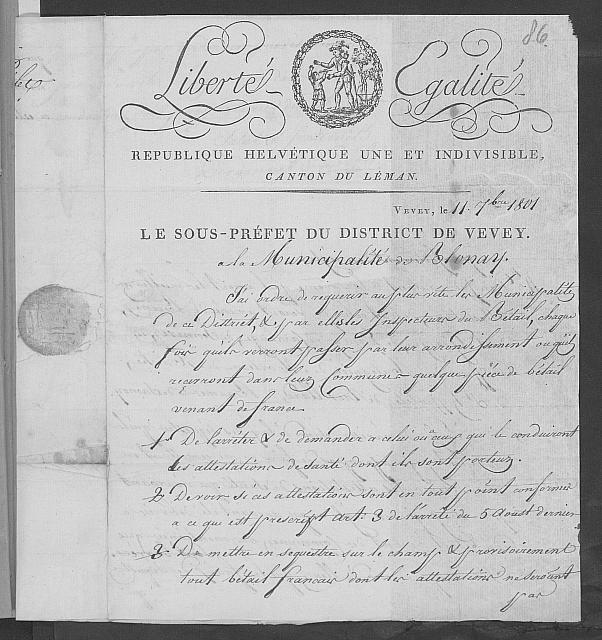 86.
Liberté Egalité
REPUBLIQUE HELVÉTIQUE UNE ET INDIVISIBLE,
CANTON DU LÉMAN.
VEVEY, le 11. 7bre 1801
LE SOUS-PRÉFET DU DISTRICT DE VEVEY.
a la Municipalité de Blonay.
J'ai ordre de requerir au plus vite les Municipalités
de ce District, & par elles les Inspecteurs du Bétail, chaque
fois qu'ils verront passer par leur arrondissement ou qu'ils
recevront dans leur Commune quelque pièce de bétail
venant de france
1. De l'arréter & de demander a celui ou ceux qui le conduiront
les attestations de santé dont ils sont porteur.
2. De voir si ces attestations sont en tout point conformes
a ce qui est prescript Art. 3 de l'arrété du 5 Aoust dernier
3. De mettre en sequestre sur le champ & provisoirement
tout bétail francais dont les attestations ne seroient
pas